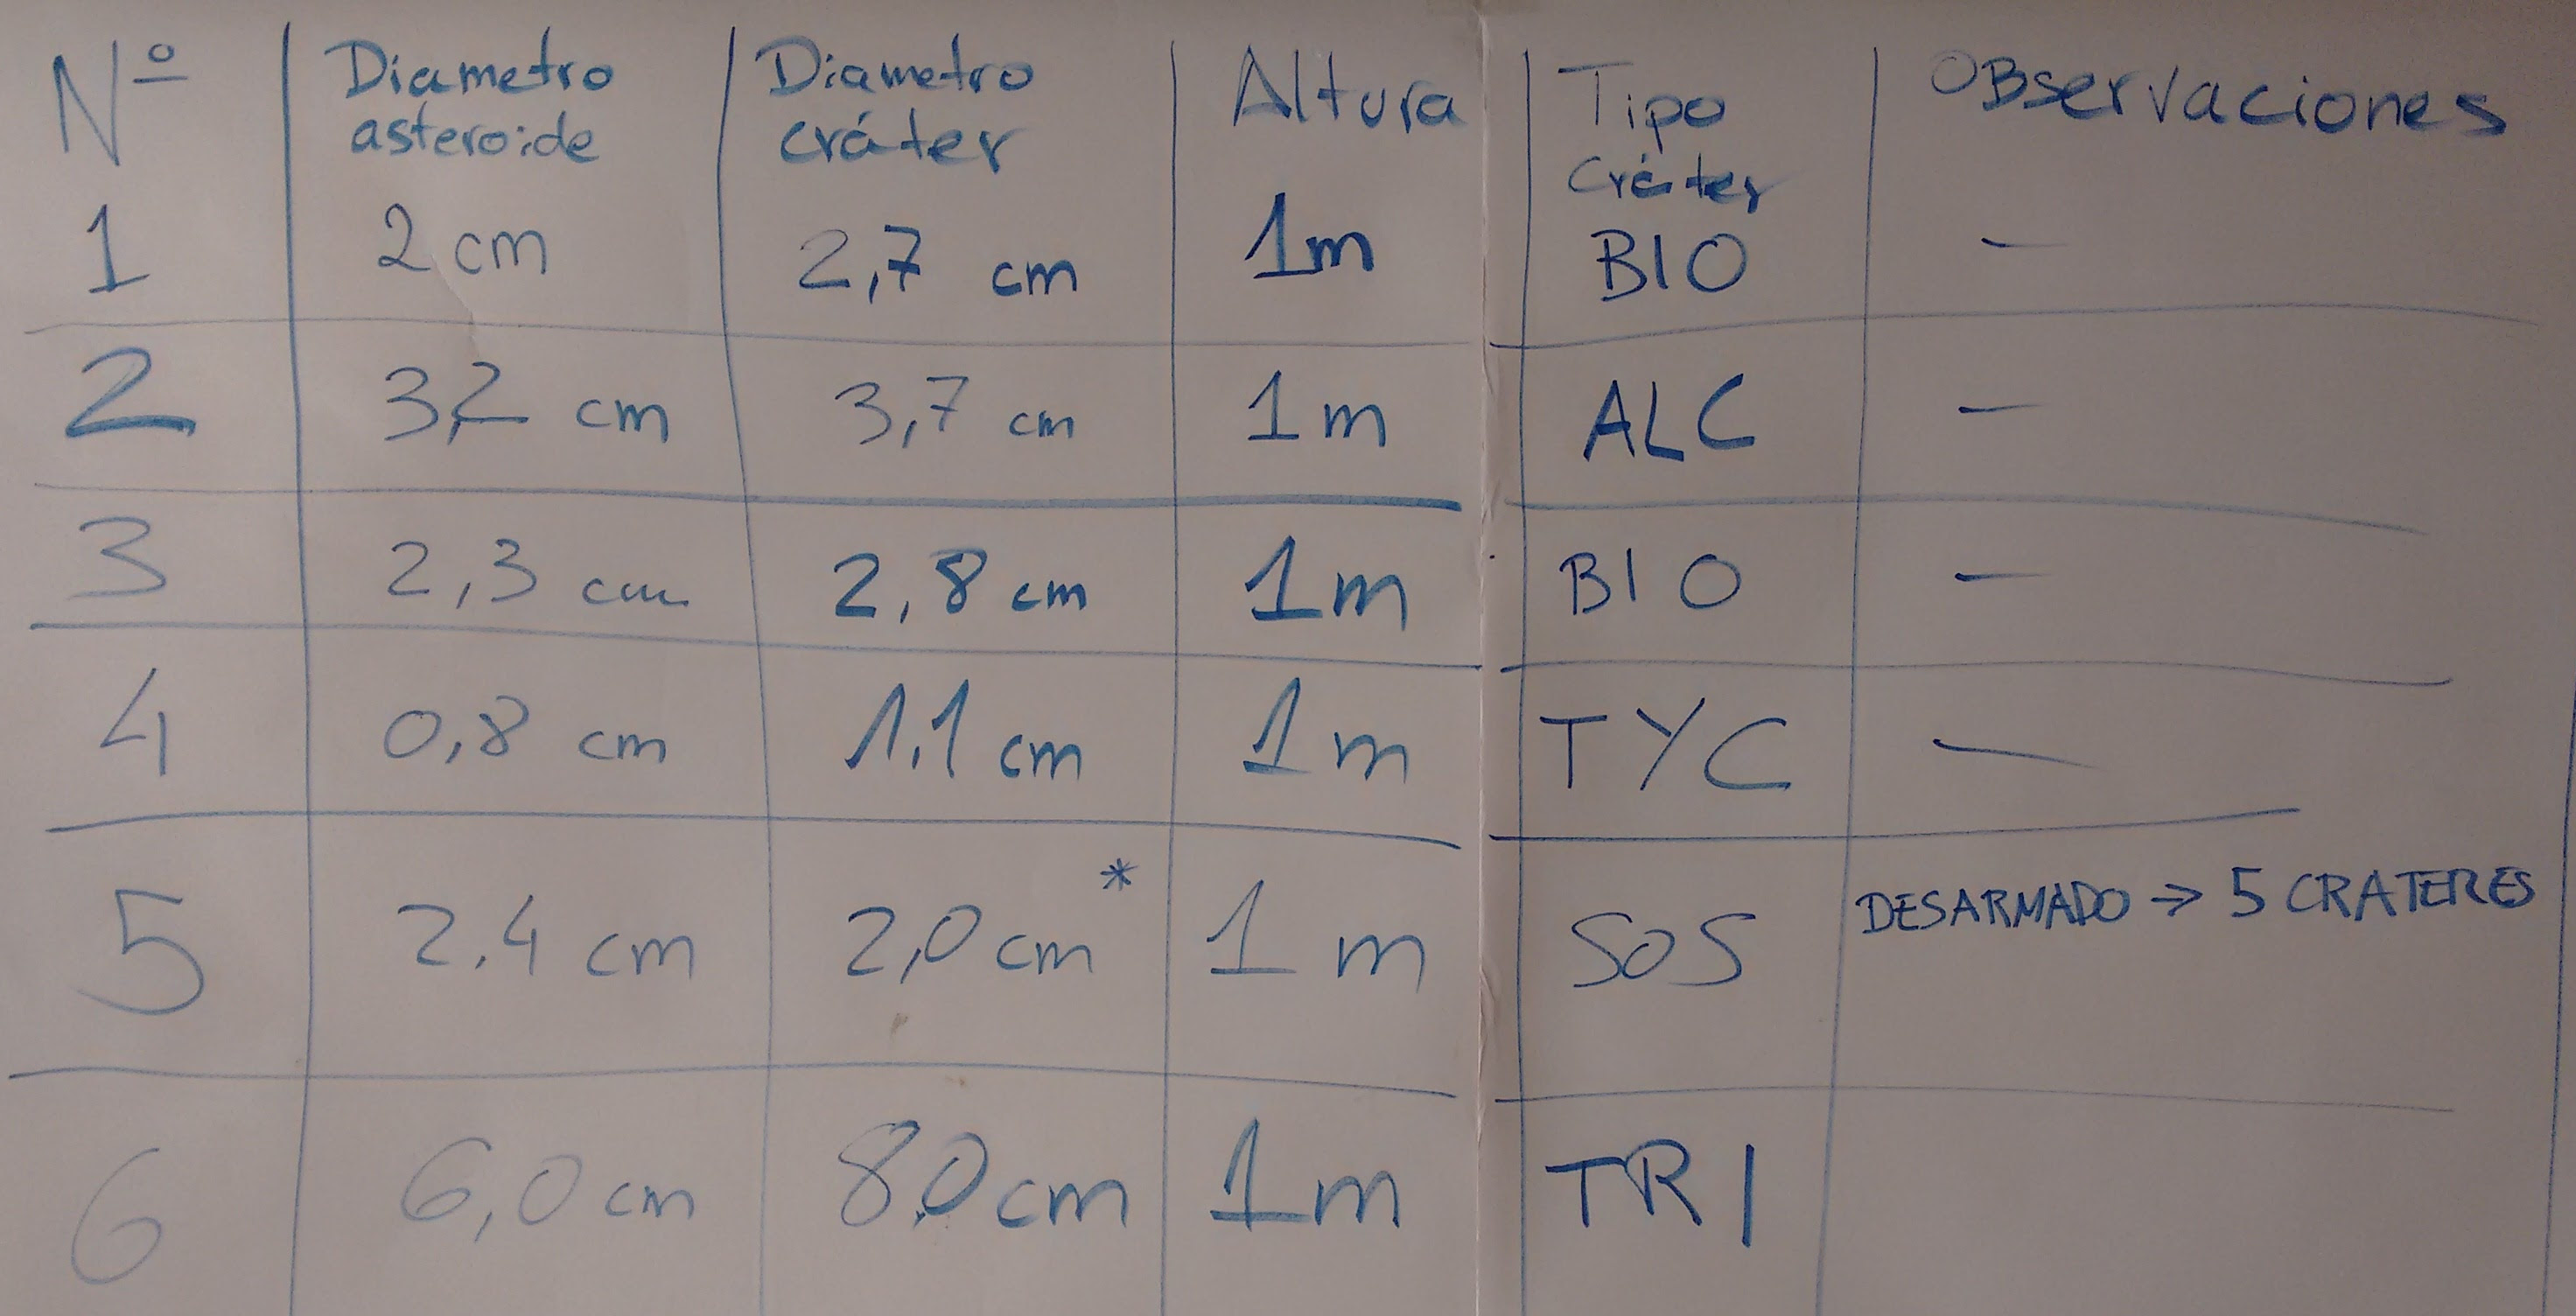 Nº Diametro asteroide Diametro cráter Altura Tipo Cráter OBservaciones
1 2 cm 2,7 cm 1m BIO —
2 3,2 cm 3,7 cm 1m ALC —
3 2,3 cm 2,8 cm 1m BIO —
4 0,8 cm 1,1 cm 1m TYC —
5 2,4 cm 2,0 cm * 1 m SOS DESARMADO → 5 CRATERES
6 6,0 cm 8,0 cm 1m TRI